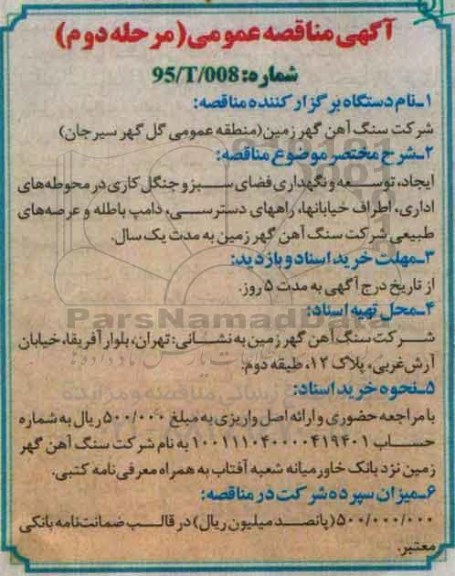 آگهی مناقصه عمومی (مرحله دوم)
شماره: 95/T/008
۱ـ نام دستگاه برگزار کننده مناقصه:
شرکت سنگ آهن گهر زمین (منطقه عمومی گل گهر سیرجان)
۲ـ شرح مختصر موضوع مناقصه:
ایجاد، توسعه و نگهداری فضای سبز و جنگل کاری در محوطه‌های
اداری، اطراف خیابانها، راههای دسترسی، دامپ باطله و عرصه‌های
طبیعی شرکت سنگ آهن گهر زمین به مدت یک سال.
۳ـ مهلت خرید اسناد و بازدید:
از تاریخ درج آگهی به مدت ۵ روز.
۴ـ محل تهیه اسناد:
ParsNamadData
شرکت سنگ آهن گهر زمین به نشانی: تهران، بلوار آفریقا، خیابان
آرش غربی، پلاک ۱۲، طبقه دوم.
۵ـ نحوه خرید اسناد:
با مراجعه حضوری و ارائه اصل واریزی به مبلغ ۵۰۰/۰۰۰ ریال به شماره
حساب ۱۰۰۱۱۱۰۴۰۰۰۰۴۱۹۴۰۱ به نام شرکت سنگ آهن گهر
زمین نزد بانک خاورمیانه شعبه آفتاب به همراه معرفی نامه کتبی.
۶ـ میزان سپرده شرکت در مناقصه:
۵۰۰/۰۰۰/۰۰۰ (پانصد میلیون ریال) در قالب ضمانت‌نامه بانکی
معتبر.